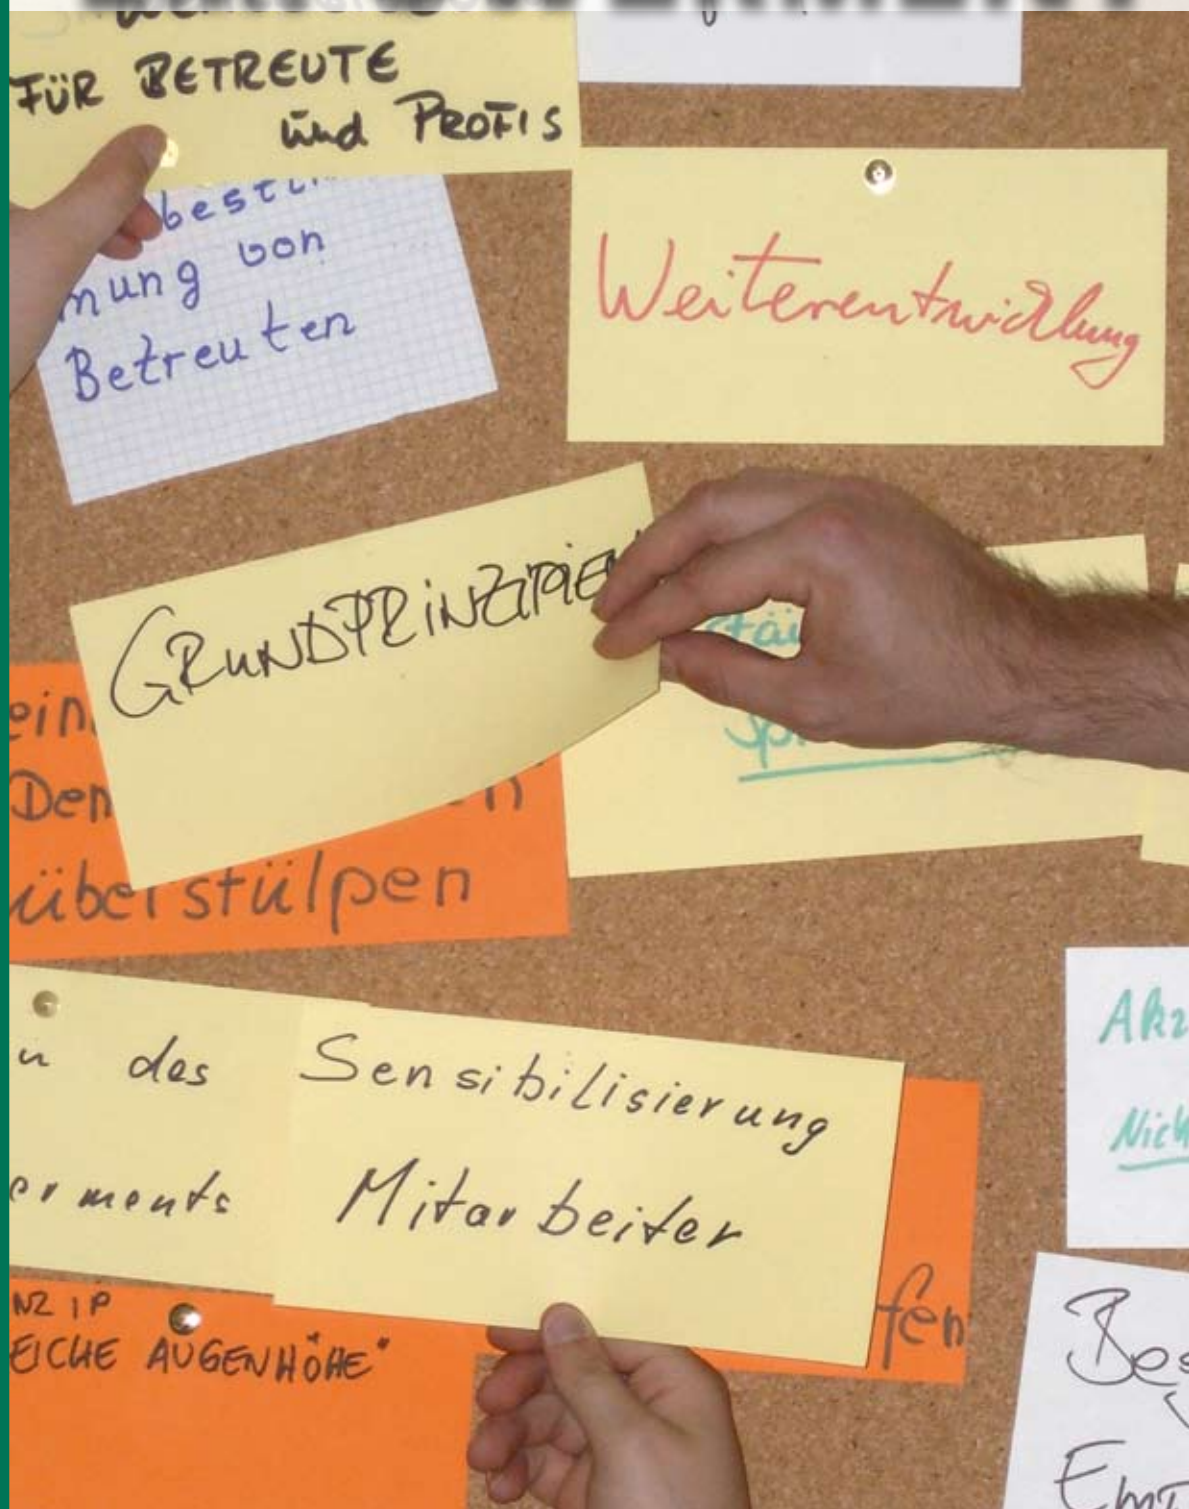 FÜR BETREUTE
und PROFIS
mung von
Betreuten
Weiterentwicklung
GRUNDPRINZIPIEN
ein
Den
überstülpen
des
Sensibilisierung
Mitarbeiter
erments
fen
NZIP
EICHE AUGENHÖHE"
Akz
Nich
Be
Em